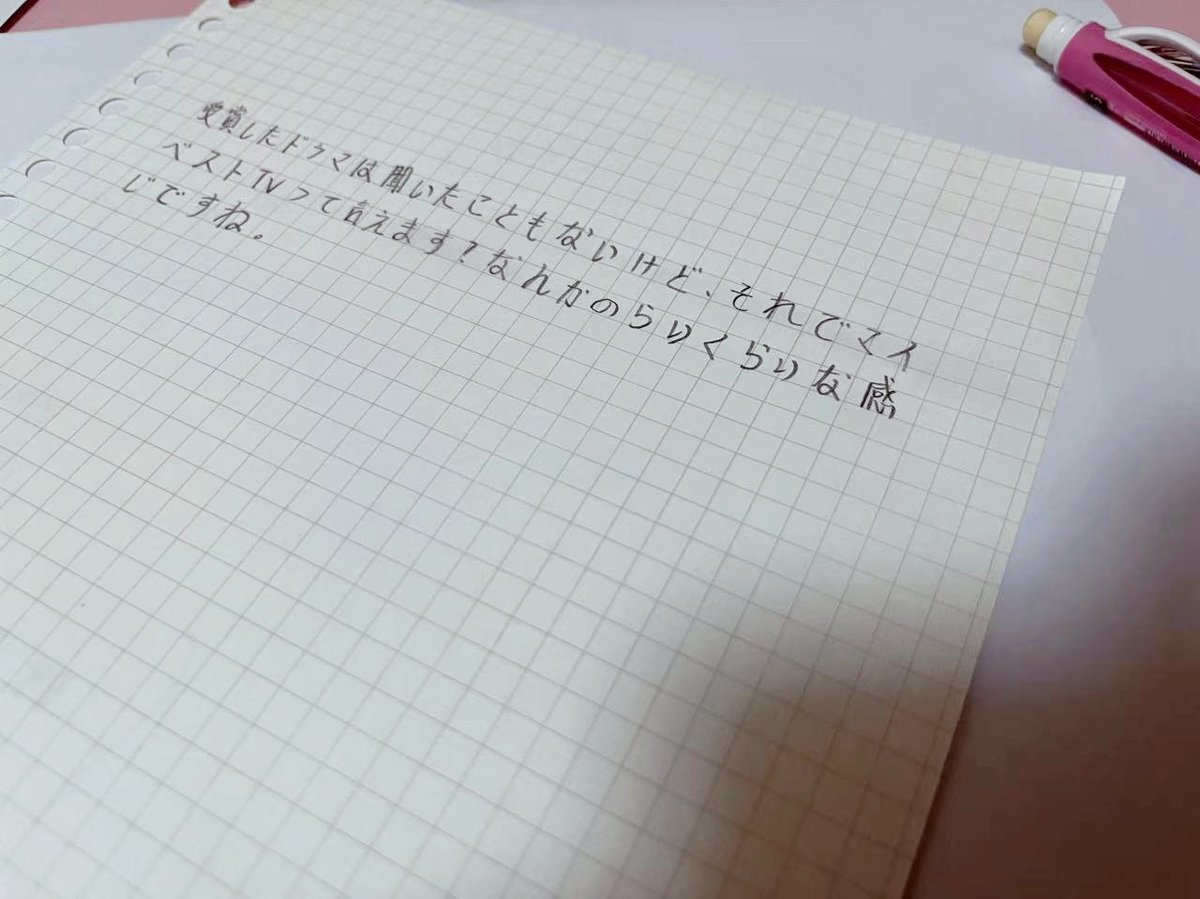 受賞したドラマは聞いたこともないけど、それでマイ
ベストTVって言えます？なんかのらりくらりな感
じですね。